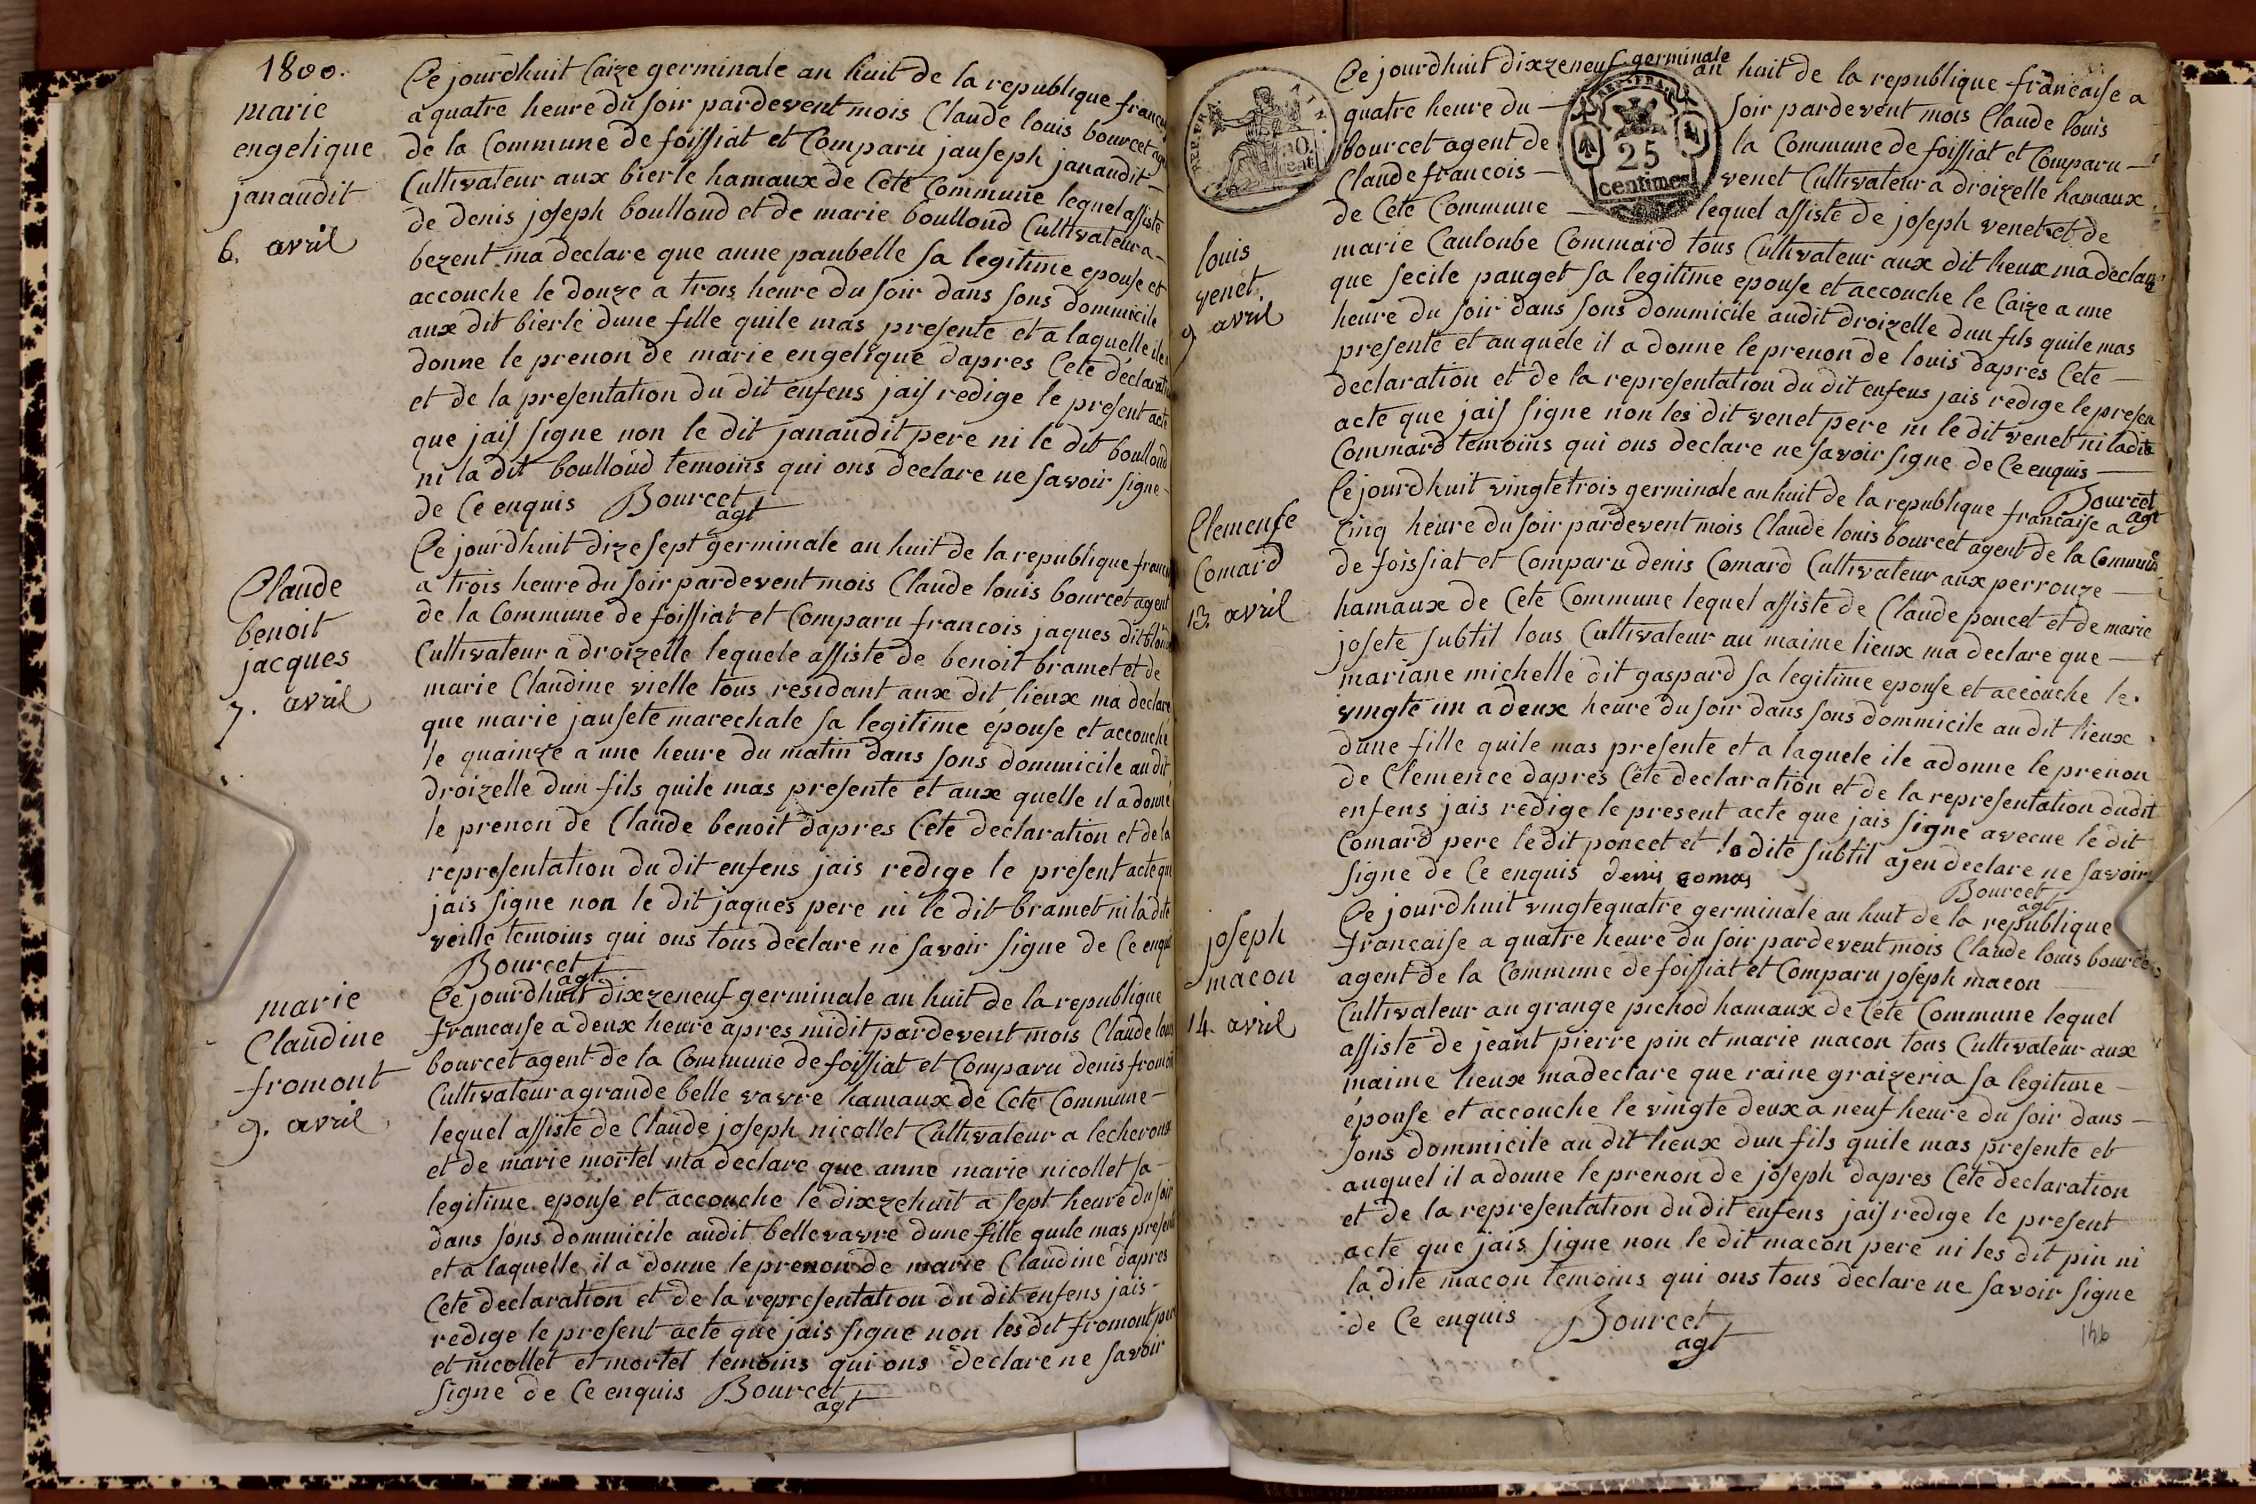 1800.
marie
engelique
janaudit
6. avril
Ce jourdhuit Caize germinale an huit de la republique francaise
a quatre heure du soir pardevent mois Claude louis bourcet agt
de la Commune de foissiat et Comparu jauseph janaudit —
Cultivateur aux bierle hamaux de Cete Commune lequel assiste
de denis joseph boulloud et de marie boulloud Cultivateur a —
bezent ma declare que anne paubelle sa legitime epouse et
accouche le douze a trois heure du soir dans sons dommicile
aux dit bierle dune fille quile mas presente et a laquelle ile
donne le prenon de marie engelique dapres Cete declaration
et de la presentation du dit enfens jais redige le present acte
que jais signe non le dit janaudit pere ni le dit boulloud
ni la dit boulloud temoins qui ons declare ne savoir signe —
de Ce enquis Bourcet
agt
Claude
benoit
jacques
7. avril
Ce jourdhuit dizesept germinale an huit de la republique
a trois heure du soir pardevent mois Claude louis bourcet agent
de la Commune de foissiat et Comparu francois jaques dit
Cultivateur a droizelle lequele assiste de benoit bramet et de
marie Claudine vielle tous residant aux dit lieux ma declare
que marie jausete marechale sa legitime épouse et accouché
le quainze a une heure du matin dans sons dommicile au dit
droizelle dun fils quile mas presente et aux quelle il a donné
le prenon de Claude benoit dapres Cete declaration et de la
representation du dit enfens jais redige le present acte que
jais signe non le dit jaques pere ni le dit bramet ni la dite
veille temoins qui ons tous declare ne savoir signe de Ce enquis
Bourcet
agt
marie
Claudine
fromont
9. avril
Ce jourdhuit dixzeneuf germinale an huit de la republique
francaise a deux heure apres midit pardevent mois Claude louis
bourcet agent de la Commune de foissiat et Comparu denis fromont
Cultivateur a grande belle vavre hamaux de Cete Commune —
lequel assiste de Claude joseph nicollet Cultivateur a lecheroux
et de marie mortel ma declare que anne marie nicollet sa —
legitime epouse et accouche le dixzehuit a sept heure du soir
dans sons dommicile audit bellevavre dune fille quile mas presente
et a laquelle il a donne le prenon de marie Claudine dapres
Cete declaration et de la representation du dit enfens jais —
redige le present acte que jais signe non les dit fromont pere
et nicollet et mortel temoins qui ons declare ne savoir
signe de Ce enquis Bourcet
agt
REP. FRA
50
cent
REP. FRA
25
centimes
louis
venet
9 avril
Ce jourdhuit dixzeneuf germinale an huit de la republique francaise a
quatre heure du — soir pardevent mois Claude louis
bourcet agent de la Commune de foissiat et Comparu —
Claude francois — venet Cultivateur a droizelle hamaux
de Cete Commune — lequel assiste de joseph venet et de
marie Cauloube Commard tous Cultivateur aux dit lieux ma declare
que secile pauget sa legitime epouse et accouche le Caize a une
heure du soir dans sons dommicile audit droizelle dun fils quile mas
presente et au quele il a donne le prenon de louis dapres Cete —
declaration et de la representation du dit enfens jais redige le presen
acte que jais signe non les dit venet pere ni le dit venet ni la dite
Commard temoins qui ons declare ne savoir signe de Ce enquis —
Bourcet
agt
Clemense
Comard
13. avril
Ce jourdhuit vingtetrois germinale an huit de la republique francaise a
Cinq heure du soir pardevent mois Claude louis bourcet agent de la Commune
de foissiat et Comparu denis Comard Cultivateur aux perrouze —
hamaux de Cete Commune lequel assiste de Claude poncet et de marie
josete subtil tous Cultivateur au maime lieux ma declare que —
mariane michelle dit gaspard sa legitime epouse et accouche le
vingte un a deux heure du soir dans sons dommicile au dit lieux
dune fille quile mas presente et a laquele ile a donne le prenon
de Clemence dapres Cete declaration et de la representation dudit
enfens jais redige le present acte que jais signe avecue le dit
Comard pere le dit poncet et la dite subtil ajen declare ne savoir
signe de Ce enquis denis comas
Bourcet
agt
joseph
macon
14. avril
Ce jourdhuit vingtequatre germinale an huit de la republique
francaise a quatre heure du soir pardevent mois Claude louis bourcet
agent de la Commune de foissiat et Comparu joseph macon —
Cultivateur au grange pichod hamaux de Cete Commune lequel
assisté de jeant pierre pin et marie macon tous Cultivateur aux
maime lieux ma declare que raine graizeria sa legitime —
épouse et accouche le vingte deux a neuf heure du soir dans —
sons dommicile au dit lieux dun fils quile mas presente et
auquel il a donne le prenon de joseph dapres Cete declaration
et de la representation du dit enfens jais redige le present
acte que jais signe non le dit macon pere ni les dit pin ni
la dite macon temoins qui ons tous declare ne savoir signe
de Ce enquis Bourcet
agt
146